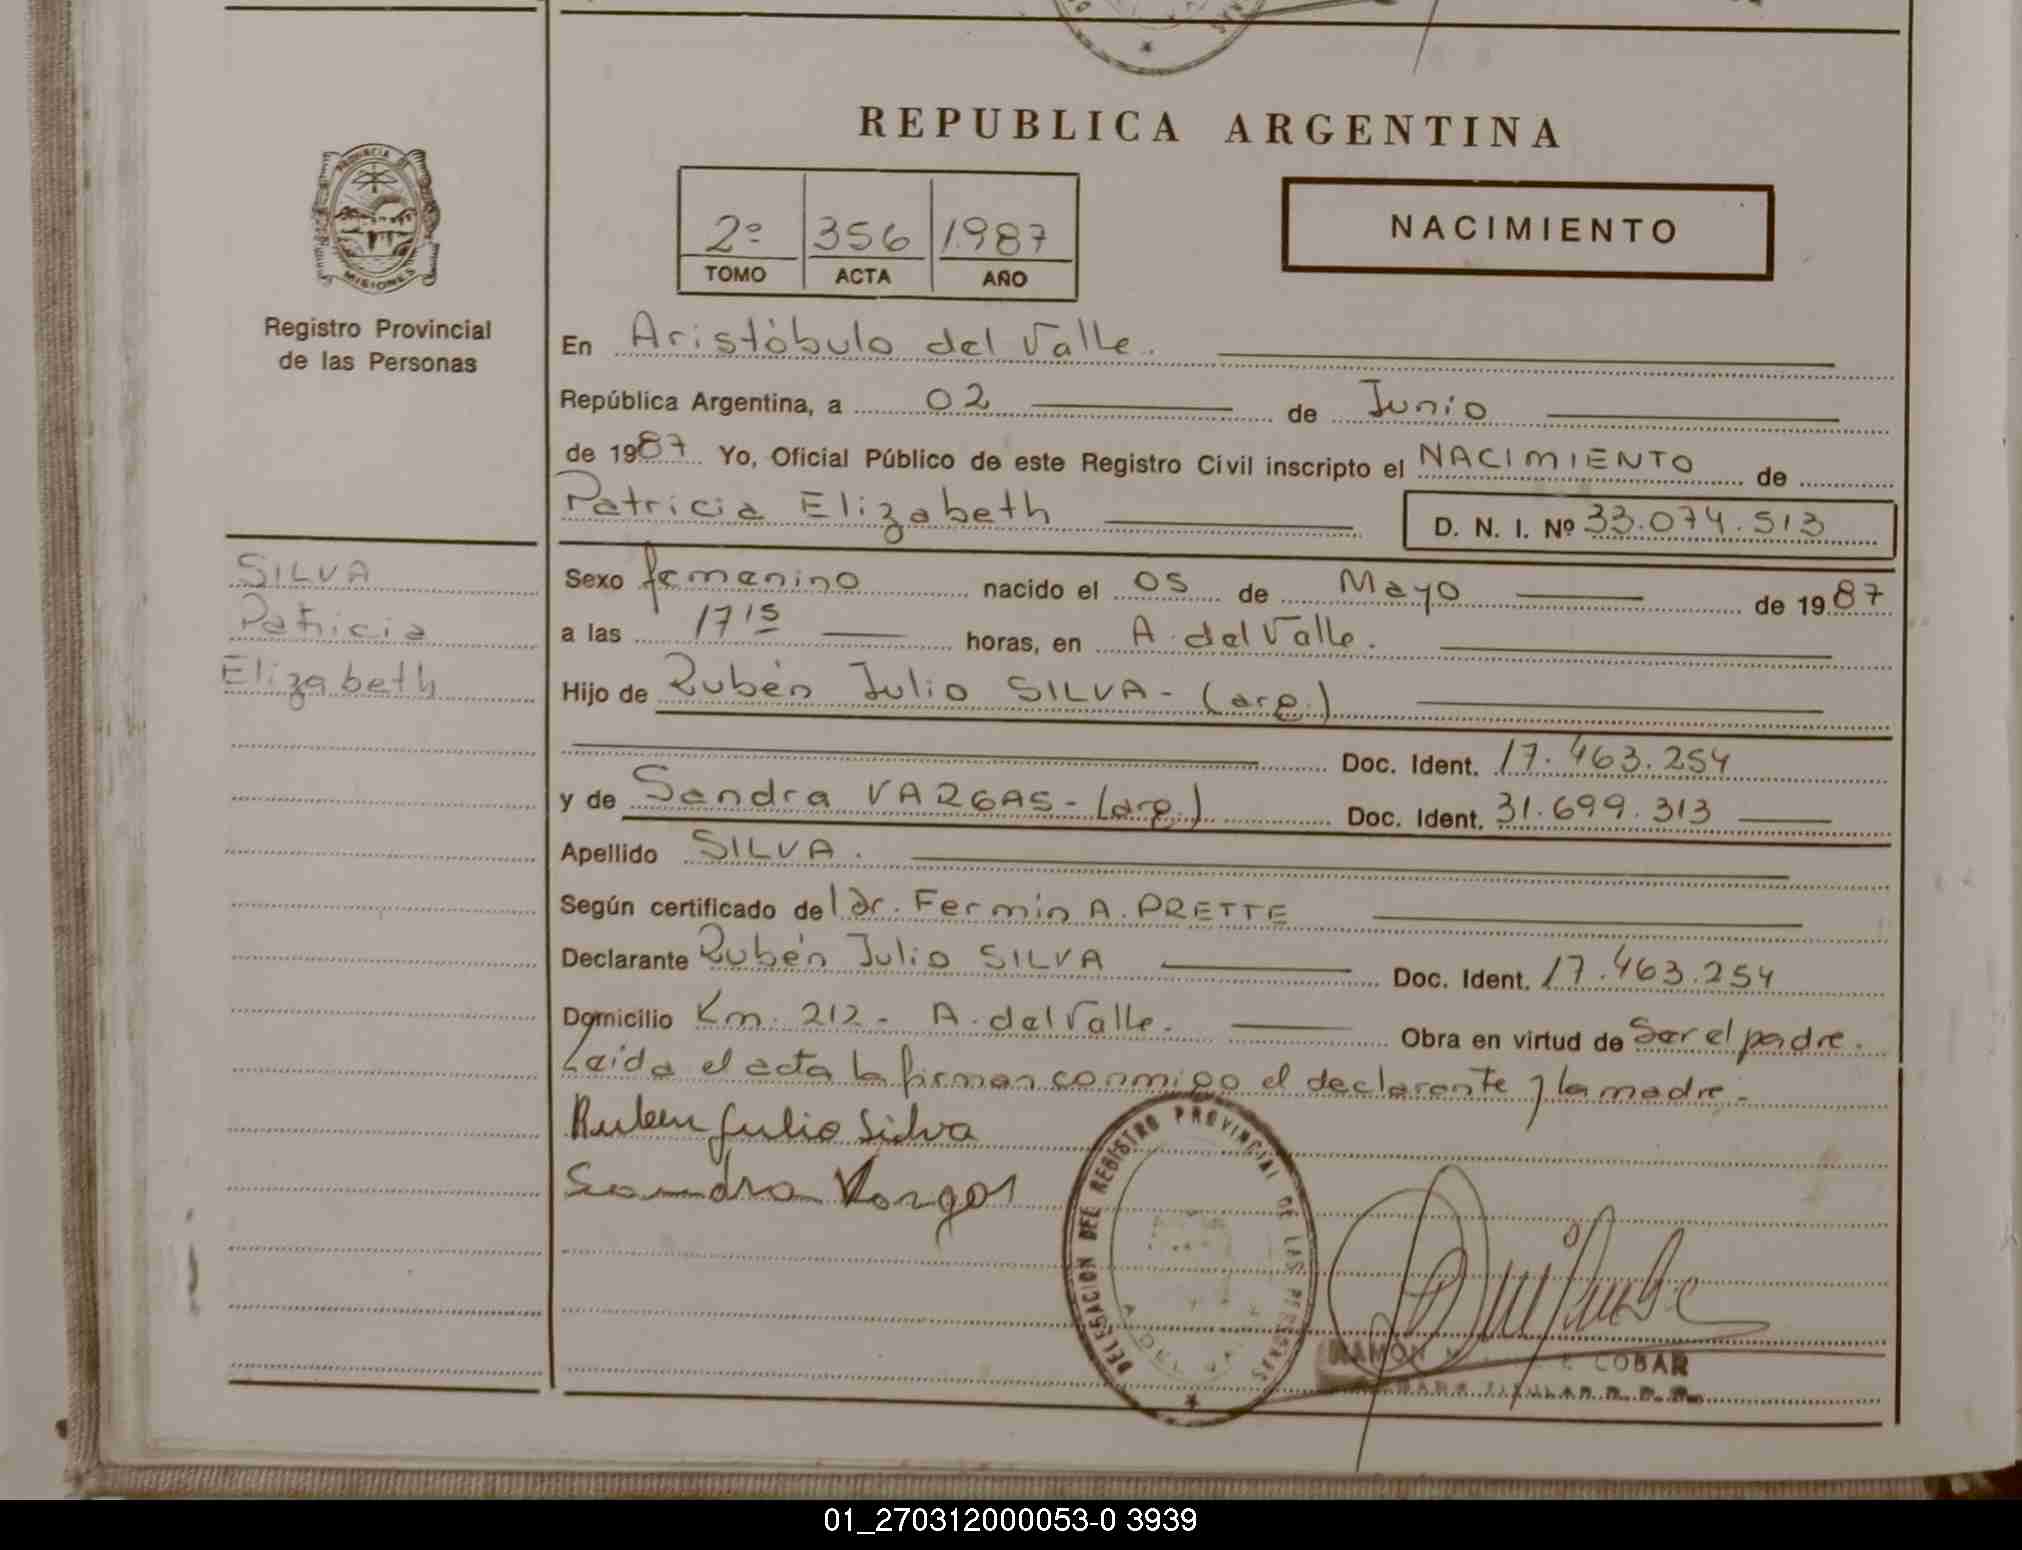 REPUBLICA ARGENTINA
PROVINCIA DE
MISIONES
Registro Provincial
de las Personas
2º 356 1987
TOMO ACTA AÑO
NACIMIENTO
En Aristóbulo del Valle.
República Argentina, a 02 de Junio
de 1987 Yo, Oficial Público de este Registro Civil inscripto el NACIMIENTO de
Patricia Elizabeth D. N. I. Nº 33.074.513
SILVA
Patricia
Elizabeth
Sexo femenino nacido el 05 de Mayo de 1987
a las 17 15 horas, en A. del Valle.
Hijo de Rubén Julio SILVA - (arg.)
Doc. Ident. 17.463.254
y de Sandra VARGAS - (arg.) Doc. Ident. 31.699.313
Apellido SILVA.
Según certificado del dr. Fermín A. PRETTE
Declarante Rubén Julio SILVA Doc. Ident. 17.463.254
Domicilio Km. 212 - A. del Valle. Obra en virtud de Ser el padre.
Leída el acta la firman conmigo el declarante y la madre.
Ruben Julio Silva
Sandra Vargas
DELEGACION DEL REGISTRO PROVINCIAL DE LAS PERSONAS
A. DEL VALLE
RAMON
COBAR
TITULAR
01_270312000053-0 3939